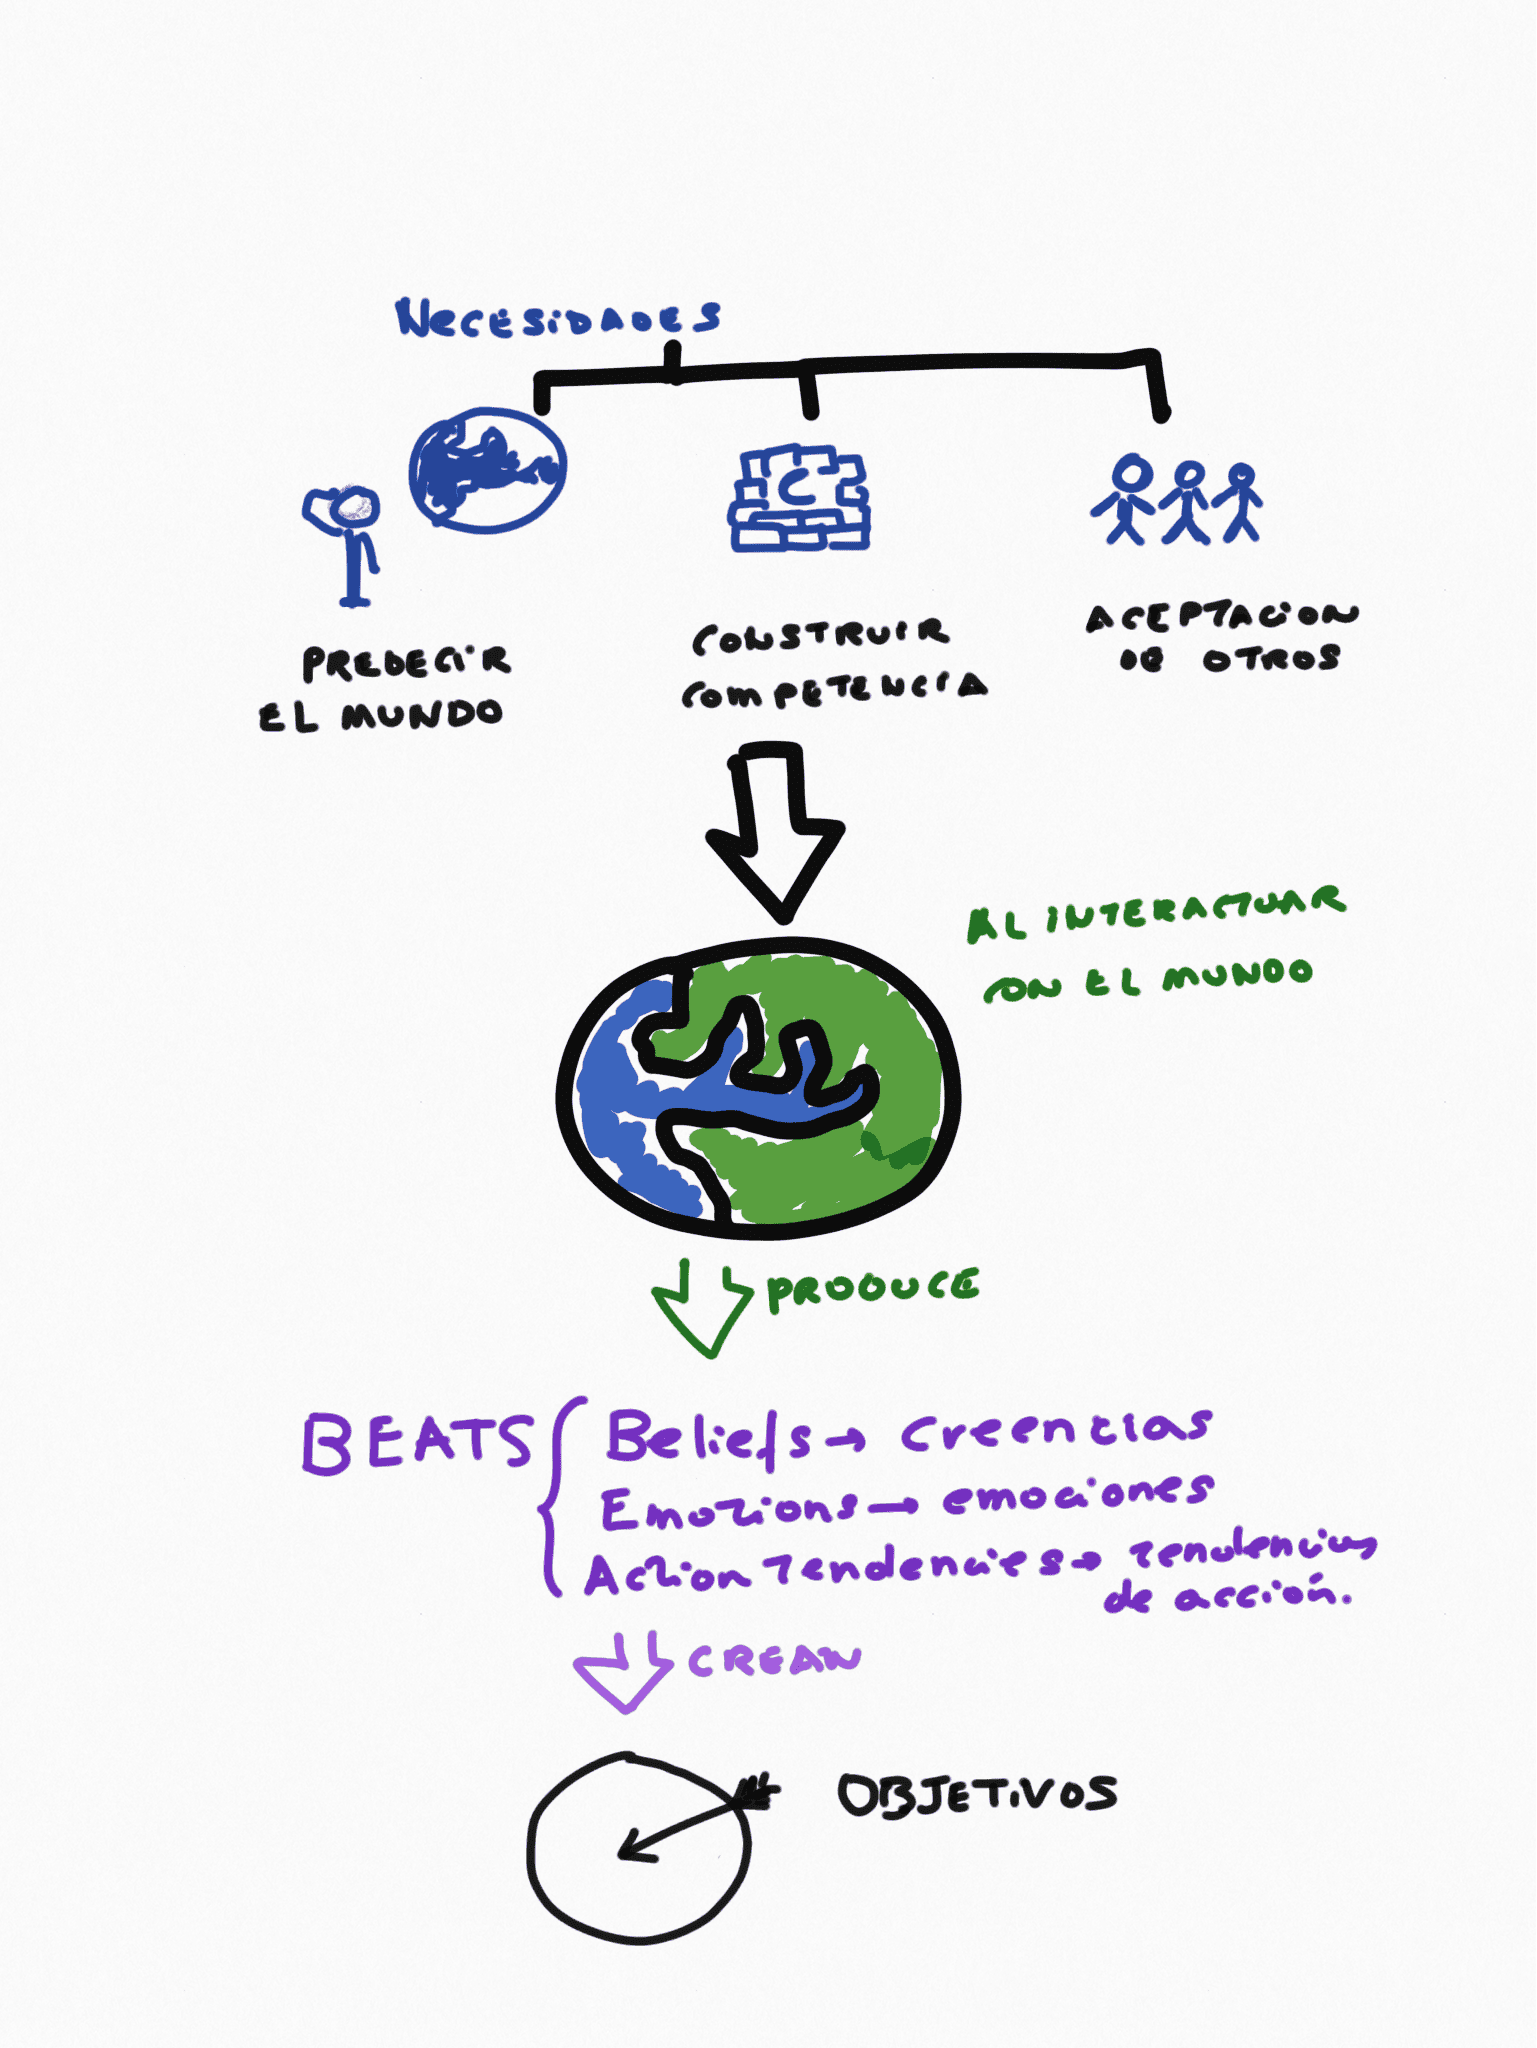 NECESIDADES
C
PREDECIR
EL MUNDO
CONSTRUIR
COMPETENCIA
ACEPTACION
DE OTROS
AL INTERACTUAR
CON EL MUNDO
PRODUCE
BEATS { Beliefs → Creencias
Emotions → emociones
Action Tendencies → Tendencias
de acción.
CREAN
OBJETIVOS